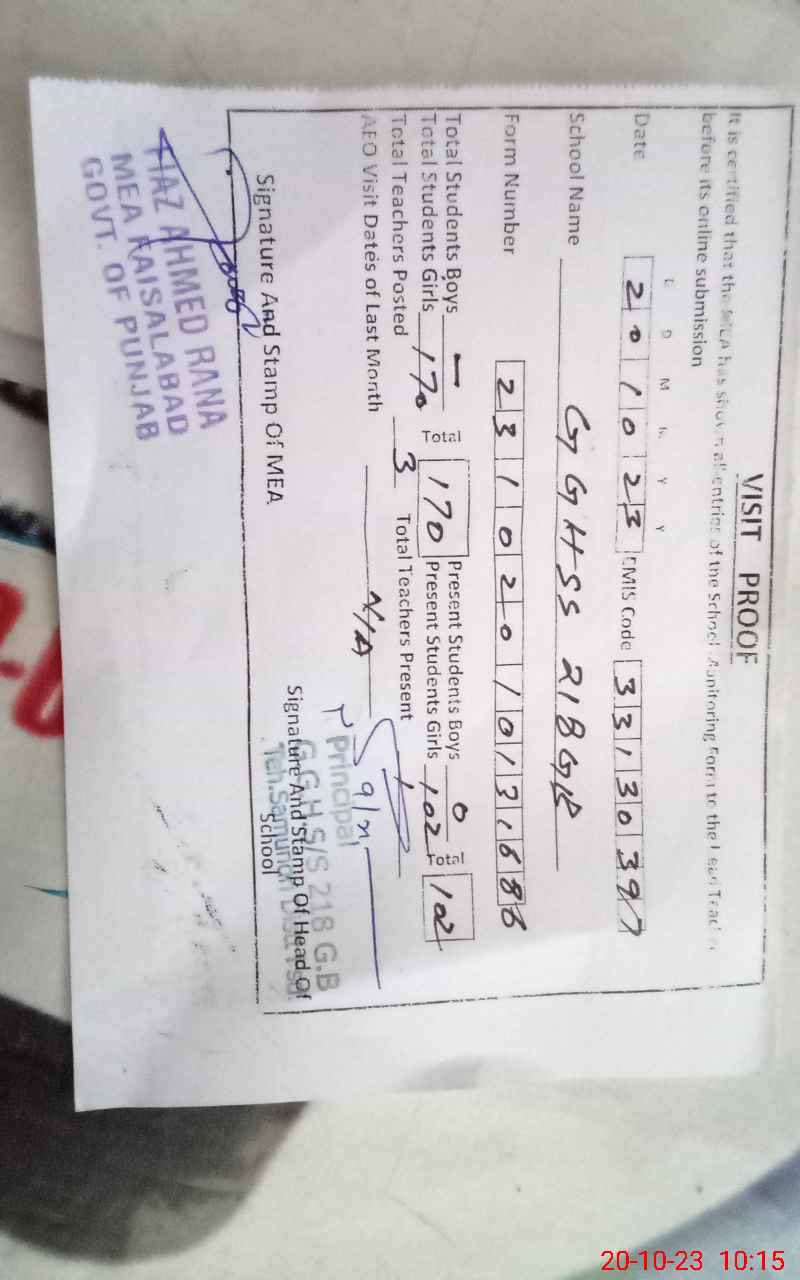 VISIT PROOF
It is certified that the MEA has shown all entries of the School Monitoring Form to the Lead Teacher
before its online submission
D D M M Y Y
Date 2 0 1 0 2 3 EMIS Code 3 3 1 3 0 3 9 7
School Name GGHSS 218 GB
Form Number 2 3 1 0 2 0 1 0 1 3 1 6 8 6
Total Students Boys – Present Students Boys 0
Total Students Girls 170 Total 170 Present Students Girls 102 Total 102
Total Teachers Posted 3 Total Teachers Present 1
AEO Visit Dates of Last Month N/A
Principal
G.G.H.S/S 218 G.B
Signature And Stamp Of MEA
Signature And Stamp Of Head Of
School
AHMED RANA
MEA FAISALABAD
GOVT. OF PUNJAB
20-10-23 10:15